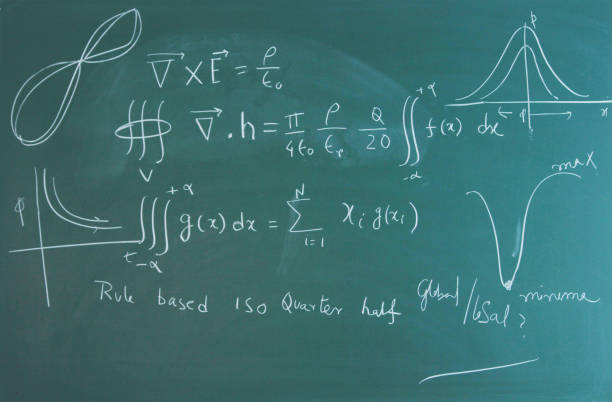 ∇⃗ × E⃗ = ρ/ε₀
p
∯ V ∇⃗ . h = π/4ε₀ ρ/εᵣ Q/20 ∬ +α -α f(x) dx
x
φ
max
∭ +α t -α g(x) dx = ∑ N i=1 xᵢ g(xᵢ)
Rule based ISO Quarter half Global/loSal? minima